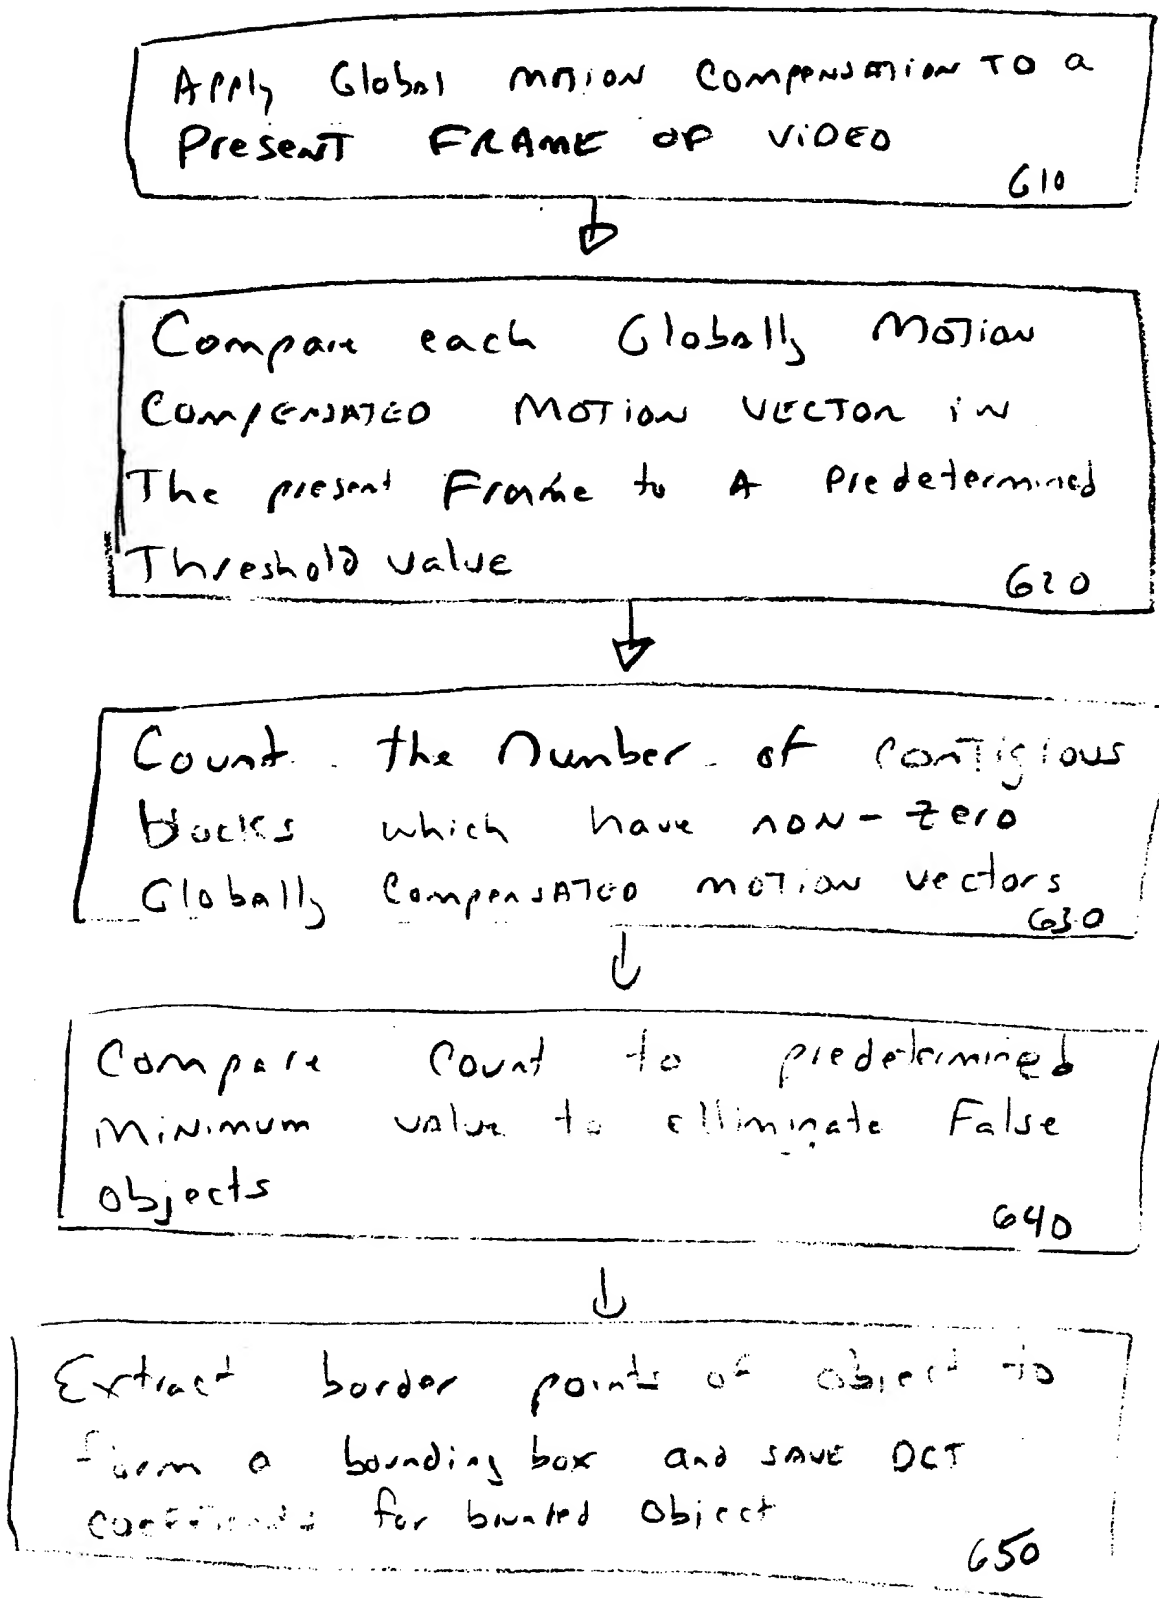 Apply Global MOTION COMPENSATION TO a
Present FRAME OF VIDEO
610
Compare each Globally MOTION
COMPENSATED MOTION VECTOR in
The present Frame to A Predetermined
Threshold value
620
Count the Number of contigious
blocks which have NON-zero
Globally COMPENSATED MOTION vectors
630
Compare Count to predetermined
MINIMUM value to elliminate False
objects
640
Extract border points of object to
form a bounding box and SAVE DCT
coefficients for bounded Object
650